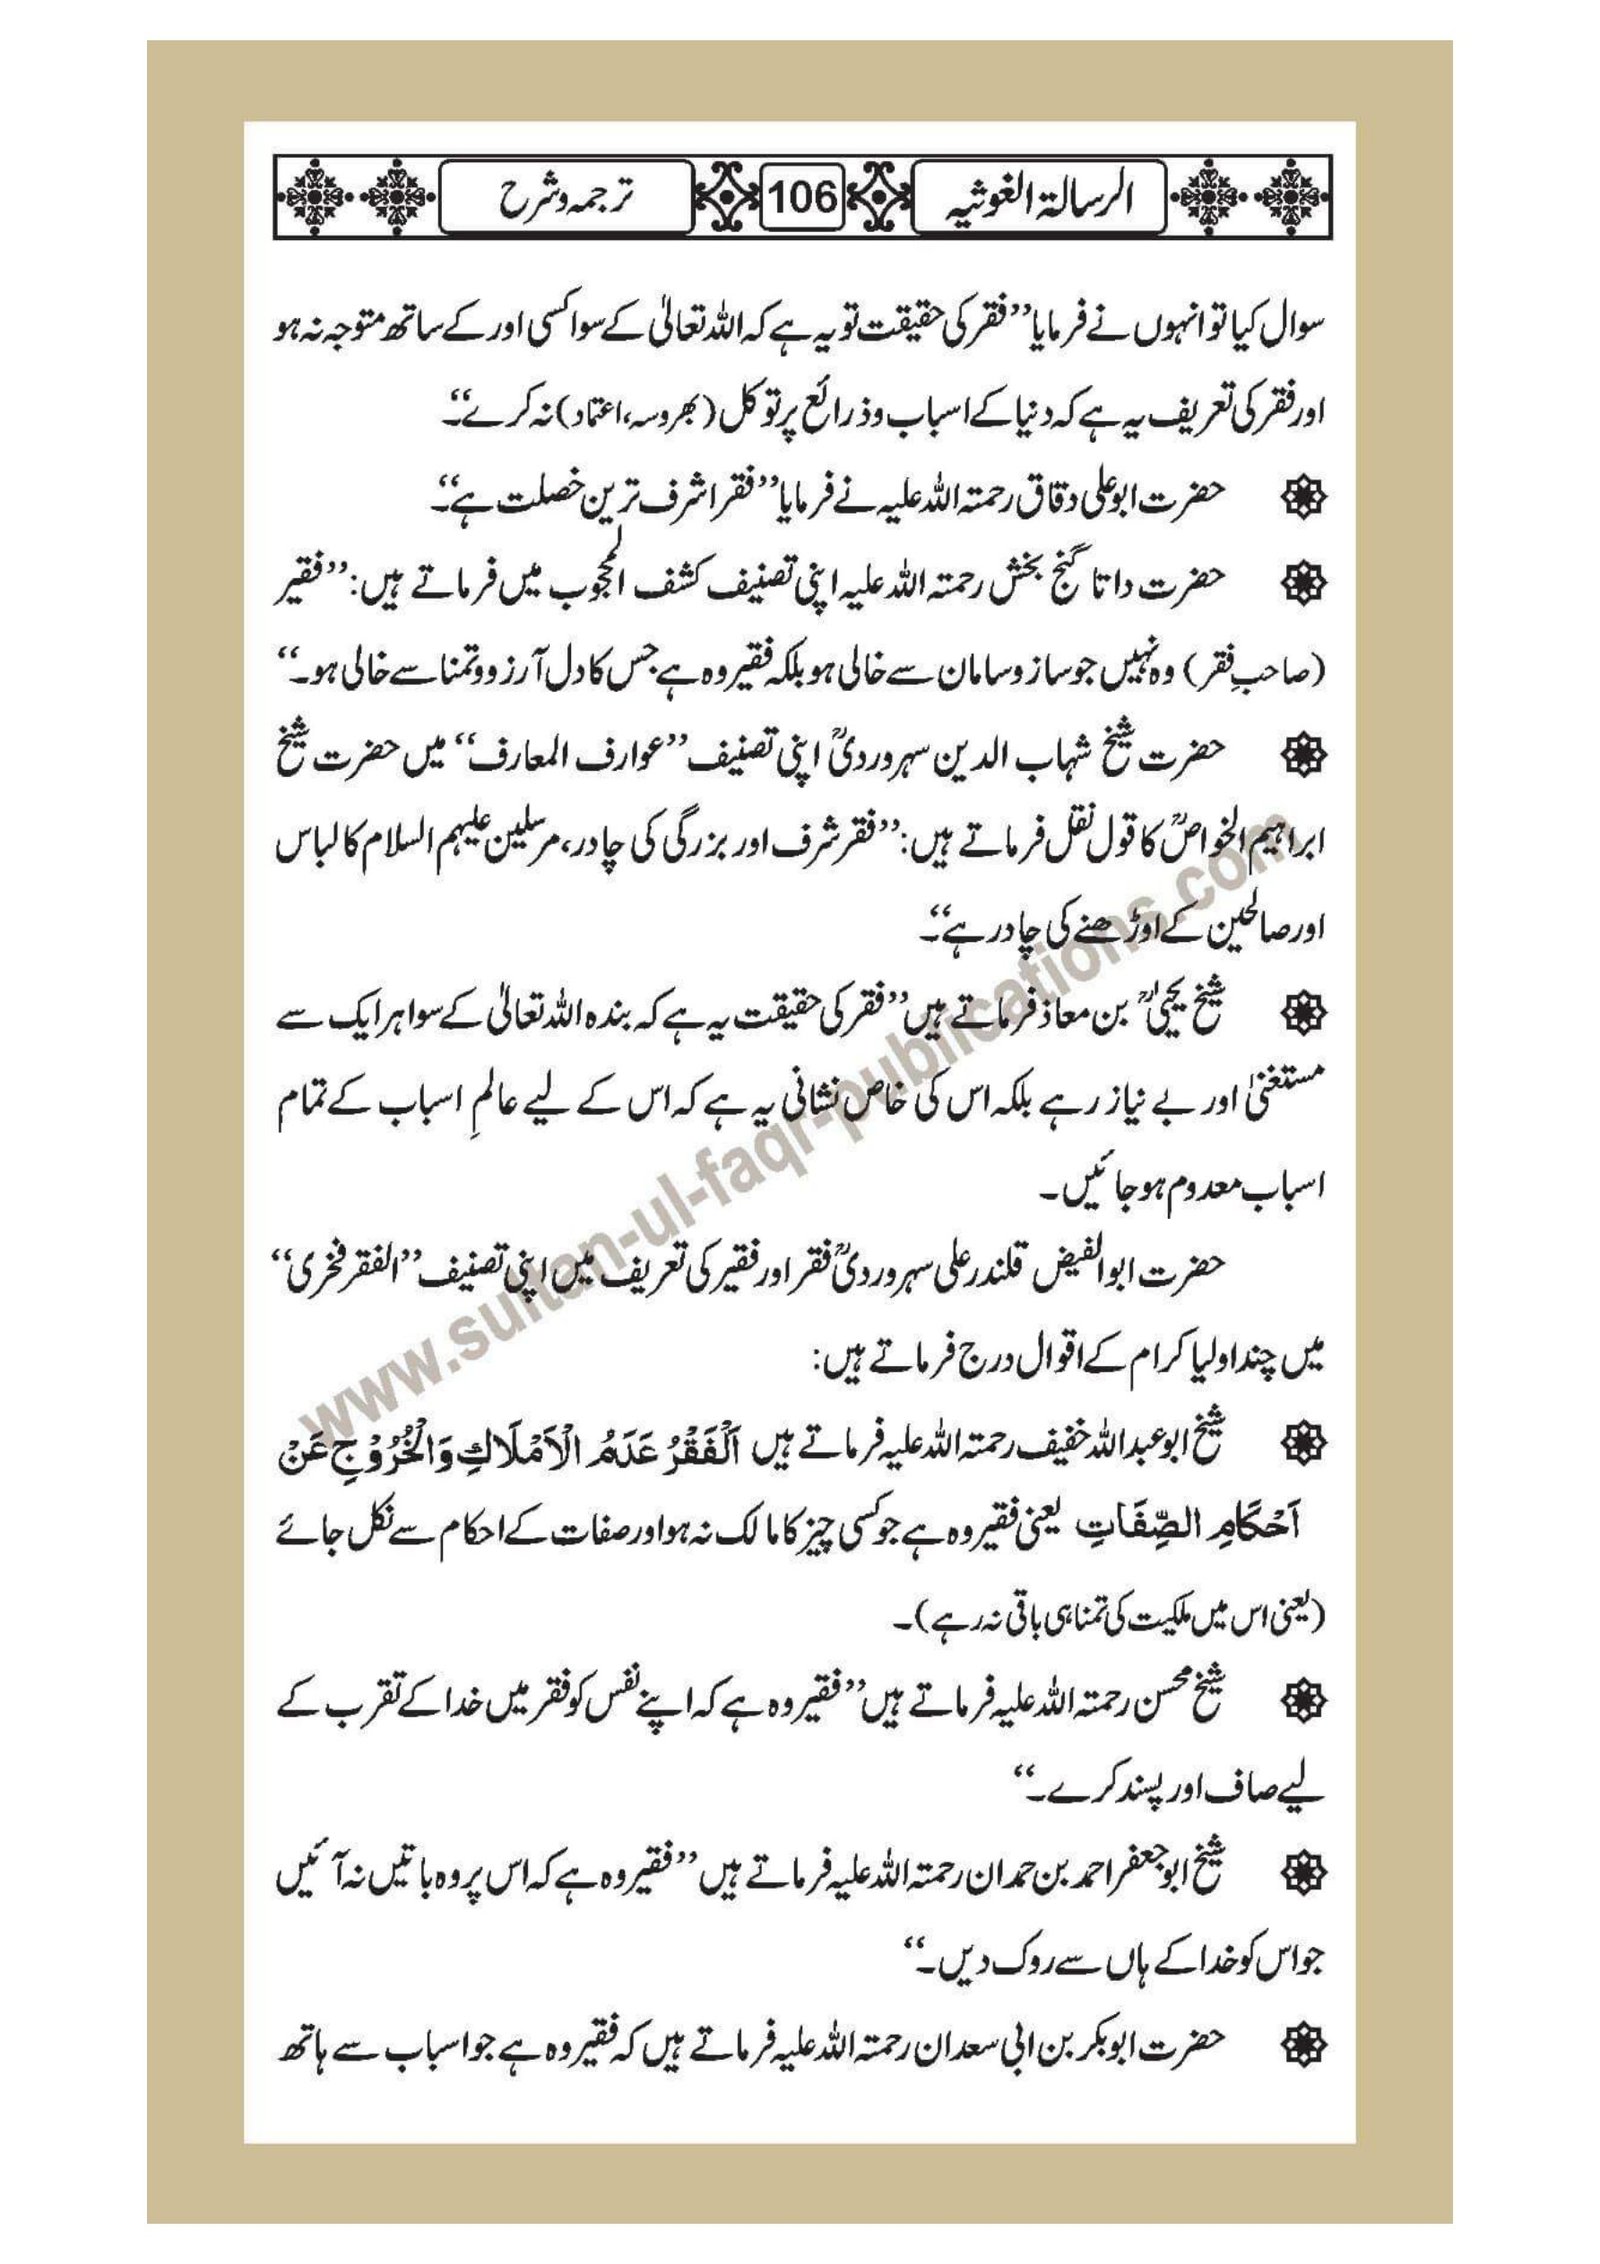 الرسالۃ الغوثیہ 106 ترجمہ و شرح
سوال کیا تو انہوں نے فرمایا ’’فقر کی حقیقت تو یہ ہے کہ اللہ تعالیٰ کے سوا کسی اور کے ساتھ متوجہ نہ ہو
اور فقر کی تعریف یہ ہے کہ دنیا کے اسباب و ذرائع پر توکل (بھروسہ، اعتماد) نہ کرے‘‘۔
حضرت ابو علی دقاق رحمتہ اللہ علیہ نے فرمایا ’’فقر اشرف ترین خصلت ہے‘‘۔
حضرت داتا گنج بخش رحمتہ اللہ علیہ اپنی تصنیف کشف المحجوب میں فرماتے ہیں: ’’فقیر
(صاحبِ فقر) وہ نہیں جو ساز و سامان سے خالی ہو بلکہ فقیر وہ ہے جس کا دل آرزو و تمنا سے خالی ہو۔‘‘
حضرت شیخ شہاب الدین سہروردیؒ اپنی تصنیف ’’عوارف المعارف‘‘ میں حضرت شیخ
ابراہیم الخواصؒ کا قول نقل فرماتے ہیں: ’’فقر شرف اور بزرگی کی چادر، مرسلین علیہم السلام کا لباس
اور صالحین کے اوڑھنے کی چادر ہے‘‘۔
شیخ یحییٰؒ بن معاذ فرماتے ہیں ’’فقر کی حقیقت یہ ہے کہ بندہ اللہ تعالیٰ کے سوا ہر ایک سے
مستغنیٰ اور بے نیاز رہے بلکہ اس کی خاص نشانی یہ ہے کہ اس کے لیے عالمِ اسباب کے تمام
اسباب معدوم ہو جائیں۔
حضرت ابو الفیض قلندر علی سہروردیؒ فقر اور فقیر کی تعریف میں اپنی تصنیف ’’الفقر فخری‘‘
میں چند اولیا کرام کے اقوال درج فرماتے ہیں:
شیخ ابو عبداللہ خفیف رحمتہ اللہ علیہ فرماتے ہیں اَلْفَقْرُ عَدَمُ الْاَمْلَاكِ وَالْخُرُوْجِ عَنْ
اَحْكَامِ الصِّفَاتِ یعنی فقیر وہ ہے جو کسی چیز کا مالک نہ ہو اور صفات کے احکام سے نکل جائے
(یعنی اس میں ملکیت کی تمنا ہی باقی نہ رہے)۔
شیخ محسن رحمتہ اللہ علیہ فرماتے ہیں ’’فقیر وہ ہے کہ اپنے نفس کو فقر میں خدا کے تقرب کے
لیے صاف اور پسند کرے۔‘‘
شیخ ابو جعفر احمد بن حمدان رحمتہ اللہ علیہ فرماتے ہیں ’’فقیر وہ ہے کہ اس پر وہ باتیں نہ آئیں
جو اس کو خدا کے ہاں سے روک دیں۔‘‘
حضرت ابوبکر بن ابی سعدان رحمتہ اللہ علیہ فرماتے ہیں کہ فقیر وہ ہے جو اسباب سے ہاتھ
www.sultan-ul-faqr-publications.com